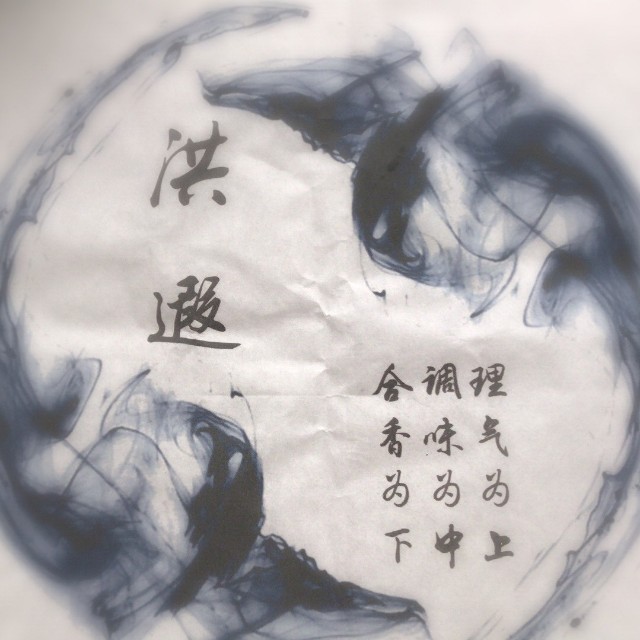 洪遐
理气为上
调味为中
合香为下